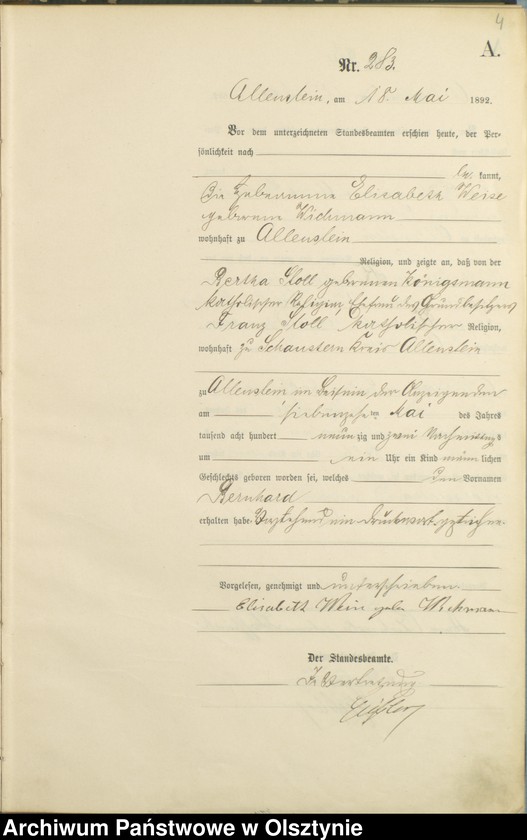 4
A.
Nr. 283.
Allenstein, am 18. Mai 1892.
Vor dem unterzeichneten Standesbeamten erschien heute, der Per-
sönlichkeit nach
be kannt,
die Hebeamme Elisabeth Weise
geborene Wichmann
wohnhaft zu Allenstein
Religion, und zeigte an, daß von der
Bertha Stoll geborenen Königsmann
katholischer Religion, Ehefrau des Grundbesitzers
Franz Stoll, katholischer Religion,
wohnhaft zu Schaustern Kreis Allenstein
zu Allenstein im Beisein der Anzeigenden
am siebenzehnten Mai des Jahres
tausend acht hundert neun zig und zwei Nachmittags
um ein Uhr ein Kind männ lichen
Geschlechts geboren worden sei, welches den Vornamen
Bernhard
erhalten habe. Vorstehend ein Druckwort gestrichen.
Vorgelesen, genehmigt und unterschrieben
Elisabeth Weise geb. Wichmann
Der Standesbeamte.
In Vertretung
Archiwum Państwowe w Olsztynie